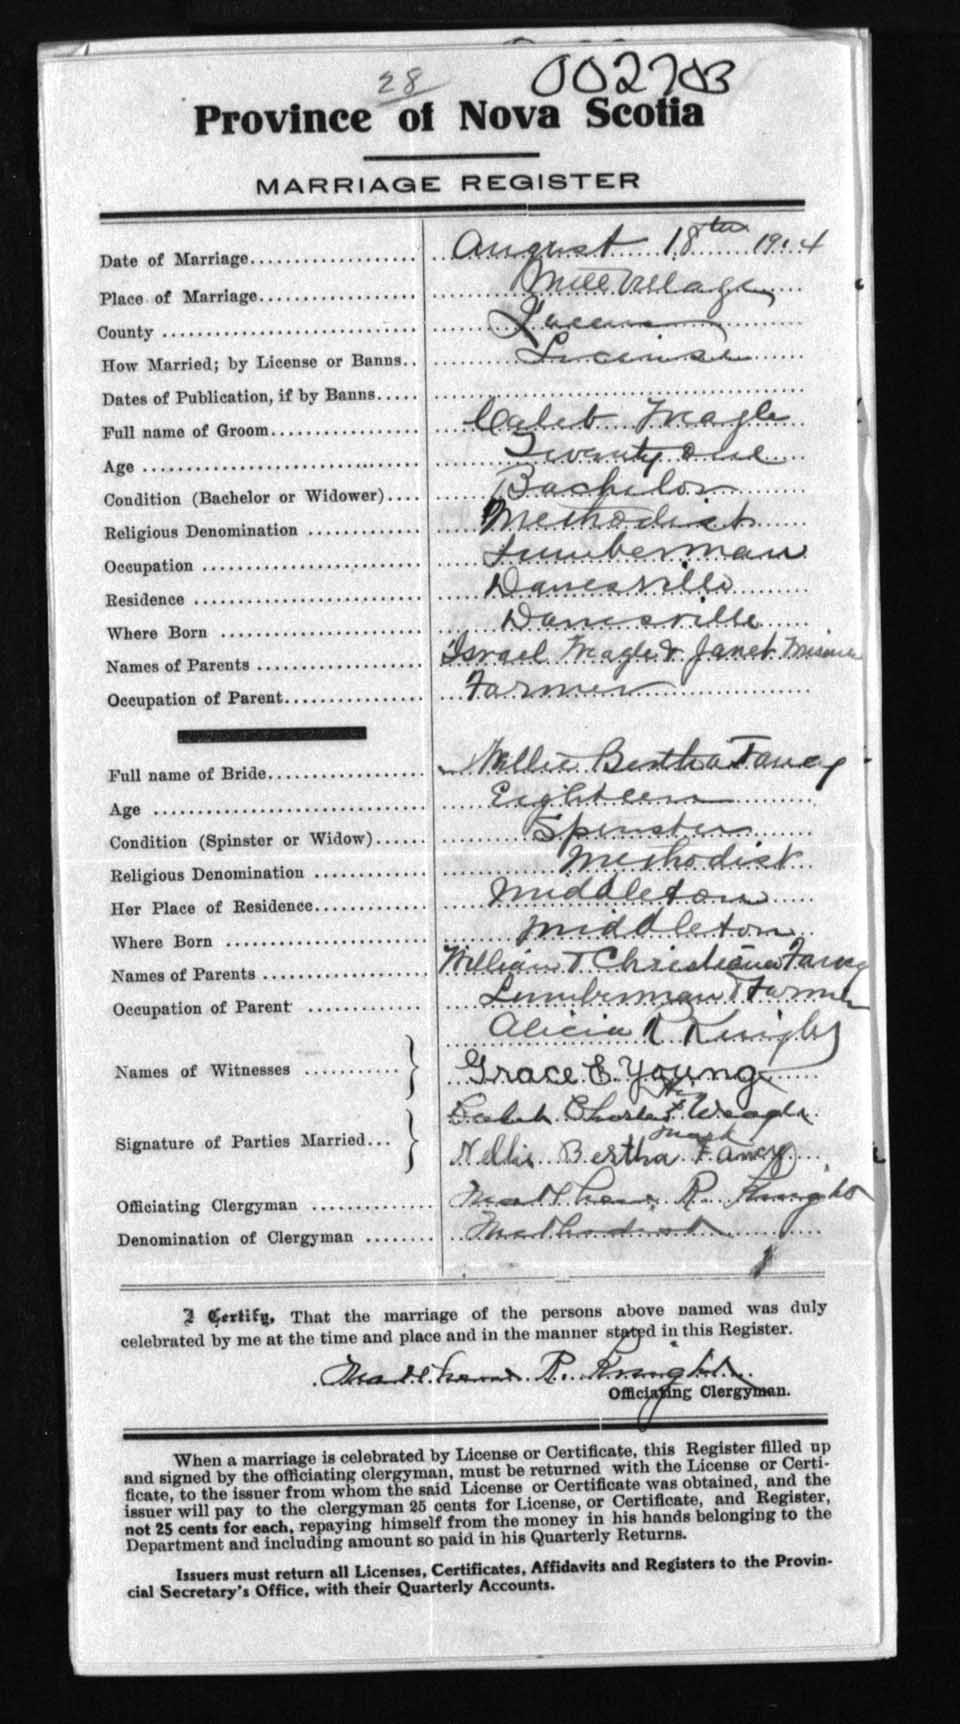 28
002703
Province of Nova Scotia
MARRIAGE REGISTER
Date of Marriage.................... August 18th 1914
Place of Marriage.................... Mill Village
County .............................. Queens
How Married; by License or Banns.. License
Dates of Publication, if by Banns.....
Full name of Groom.................. Caleb Weagle
Age .............................. Twenty one
Condition (Bachelor or Widower).... Bachelor
Religious Denomination ............ Methodist
Occupation ........................ Lumberman
Residence ......................... Danesville
Where Born ....................... Danesville
Names of Parents .................. Israel Weagle & Janet
Occupation of Parent................ Farmer
Full name of Bride................... Nellie Bertha Fancy
Age .............................. Eighteen
Condition (Spinster or Widow)...... Spinster
Religious Denomination ............ Methodist
Her Place of Residence............. Middleton
Where Born ....................... Middleton
Names of Parents .................. William & Christiana Fancy
Occupation of Parent .............. Lumberman & Farmer
Alicia R Knight
Names of Witnesses ........... Grace E. Young
His
Caleb Charles X Weagle
Mark
Signature of Parties Married... Nellie Bertha Fancy
Officiating Clergyman ............... Matthew R. Knight
Denomination of Clergyman ........ Methodist
I Certify, That the marriage of the persons above named was duly
celebrated by me at the time and place and in the manner stated in this Register.
Matthew R. Knight
Officiating Clergyman.
When a marriage is celebrated by License or Certificate, this Register filled up
and signed by the officiating clergyman, must be returned with the License or Certi-
ficate, to the issuer from whom the said License or Certificate was obtained, and the
issuer will pay to the clergyman 25 cents for License, or Certificate, and Register,
not 25 cents for each, repaying himself from the money in his hands belonging to the
Department and including amount so paid in his Quarterly Returns.
Issuers must return all Licenses, Certificates, Affidavits and Registers to the Provin-
cial Secretary's Office, with their Quarterly Accounts.